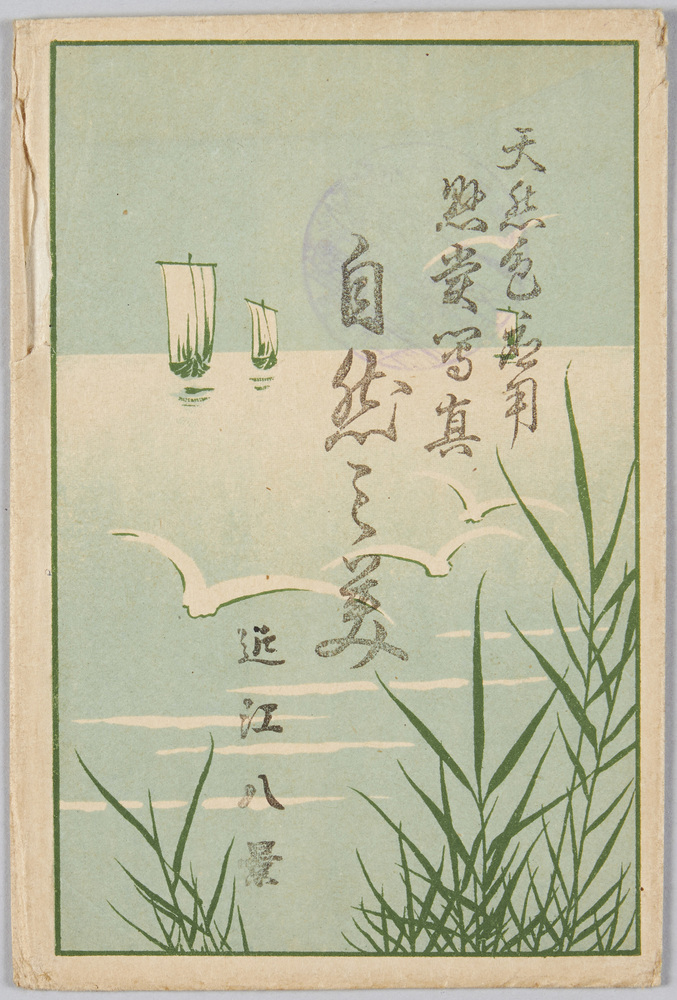 天然色應用
懸賞寫真
自然之美
近江八景